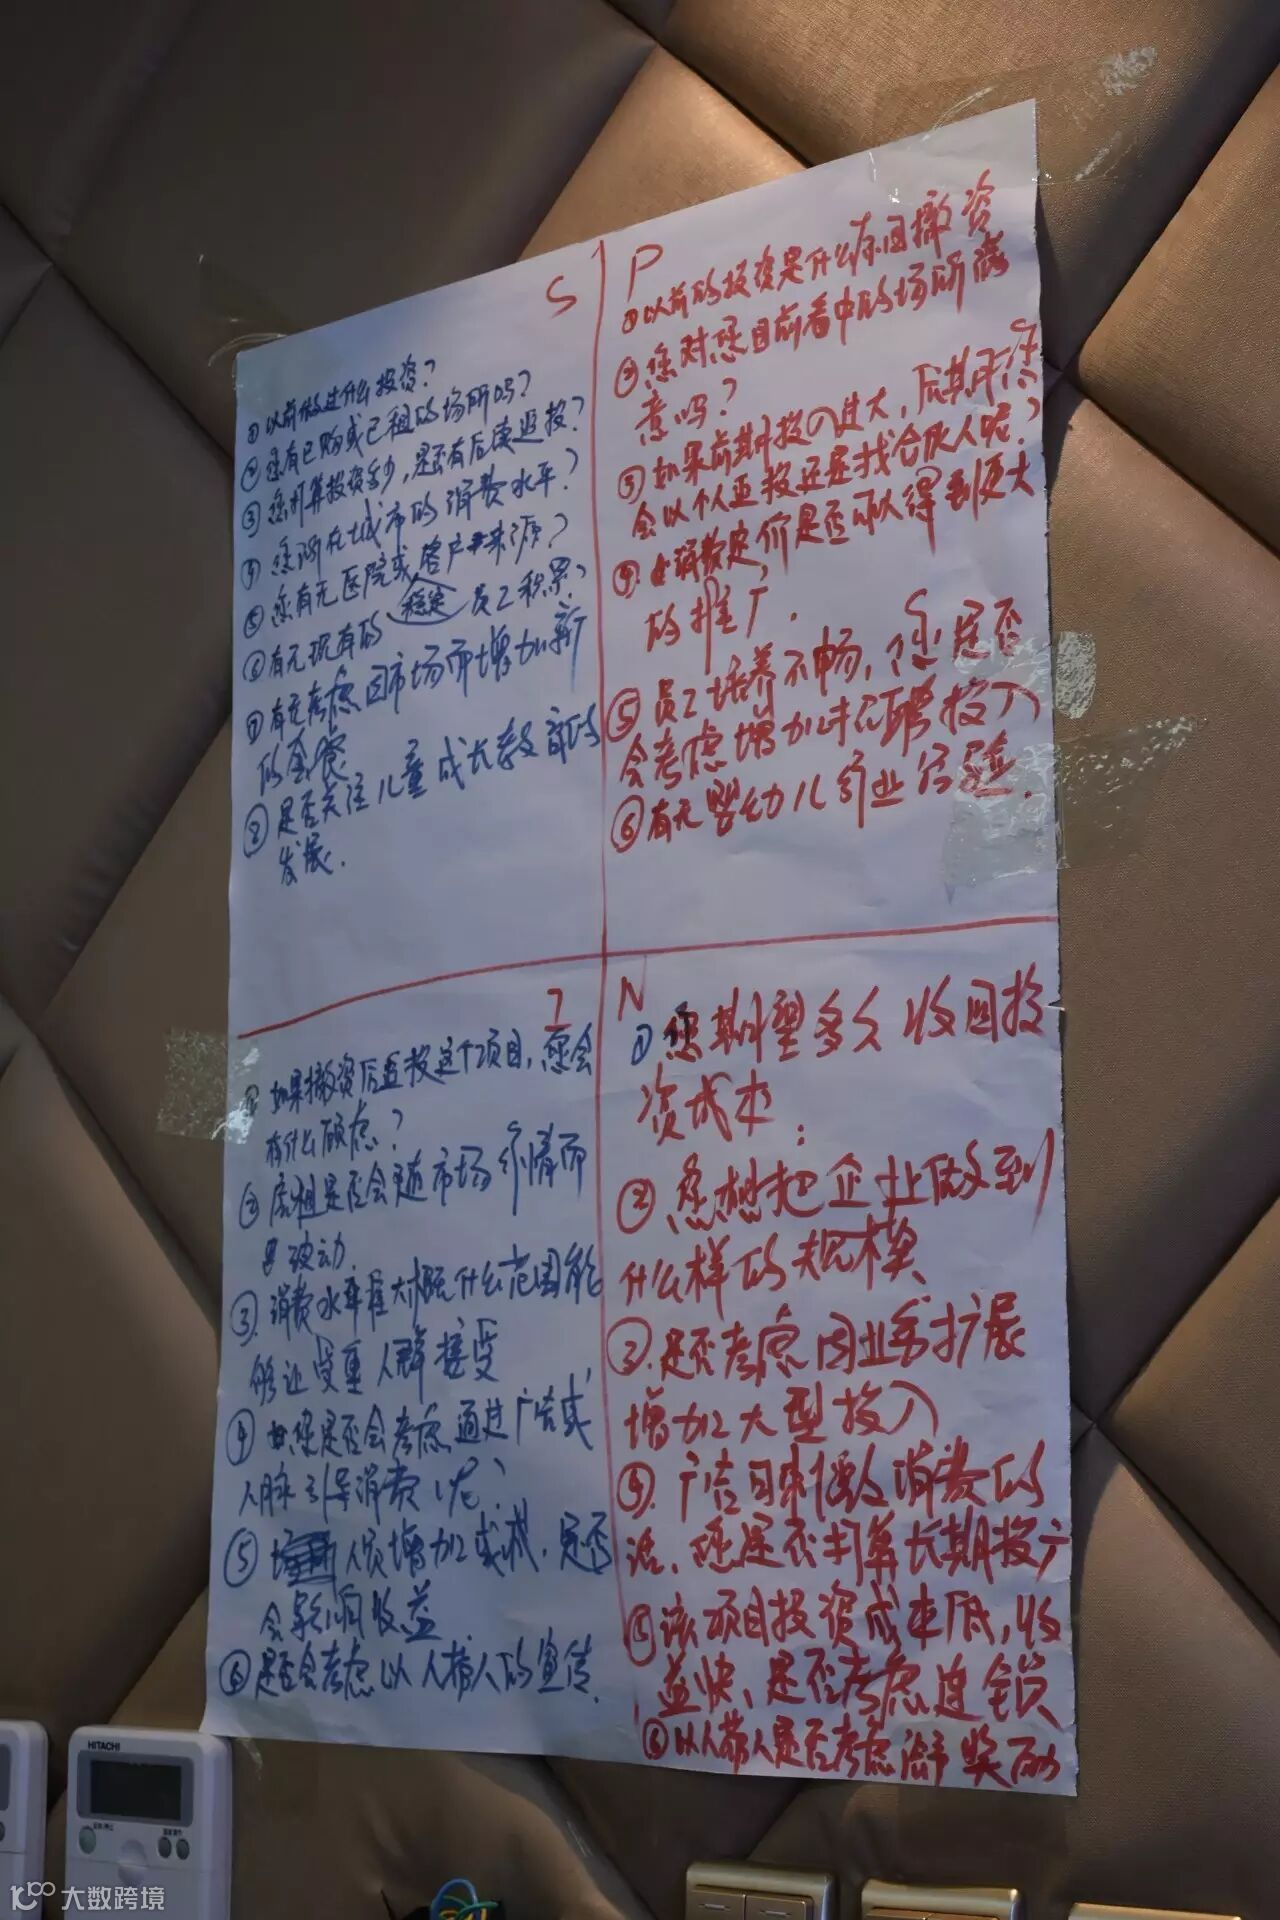 S
①以前做过什么投资?
②您有已购或已租的场所吗?
③您打算投资多少,是否有后续追投?
④您所在城市的消费水平?
⑤您有无医院或客户来源?
⑥有无现有的稳定员工积累?
⑦有无考虑因市场而增加新
的套餐
⑧是否关注儿童成长教育的
发展.
P
①以前的投资是什么原因撤资
②您对您目前看中的场所满
意吗?
③如果前期投入过大,后期您
会以个人追投还是找合伙人呢?
④消费定价是否可以得到更大
的推广.
⑤员工培养不畅,您是否
会考虑增加招聘投入
⑥有无婴幼儿行业经验.
I
①如果撤资后追投这个项目,您会
有什么顾虑?
②房租是否会随市场行情而
波动.
③.消费水平大概什么范围能
够让受重人群接受
④您是否会考虑通过广告或
人脉引导消费呢?
⑤人员增加或减.是否
会影响收益.
⑥是否会考虑以人带人的宣传.
N
①您期望多久收回投
资成本:
②您想把企业做到
什么样的规模
③.是否考虑因业务扩展
增加大型投入
④.广告因刺激消费的
话,您是否打算长期投广
⑤该项目投资成本低,收
益快、是否考虑连锁
⑥以人带人是否考虑给予奖励
HITACHI
大数跨境